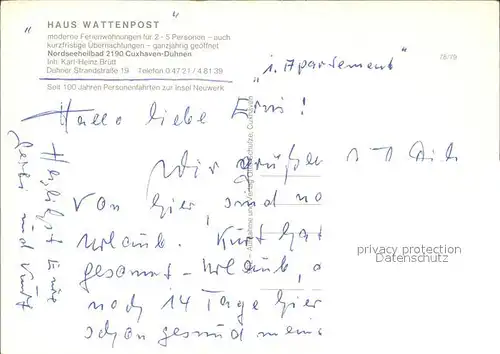 HAUS WATTENPOST
moderne Ferienwohnungen für 2 - 5 Personen – auch
kurzfristige Übernachtungen – ganzjährig geöffnet
Nordseeheilbad 2190 Cuxhaven-Duhnen
Inh. Karl-Heinz Brütt
Duhner Strandstraße 19 Telefon 0 47 21 / 4 81 39
Seit 100 Jahren Personenfahrten zur Insel Neuwerk
78/79
"i. Apartement"
Hallo liebe Erni!
Wir grüßen Dich
von hier, sind no
Urlaub. Kurt hat
gesamt - Urlaub,
noch 14 Tage hier
schon gesund
Herzlichst Eure
und Kurt
privacy protection
Datenschutz